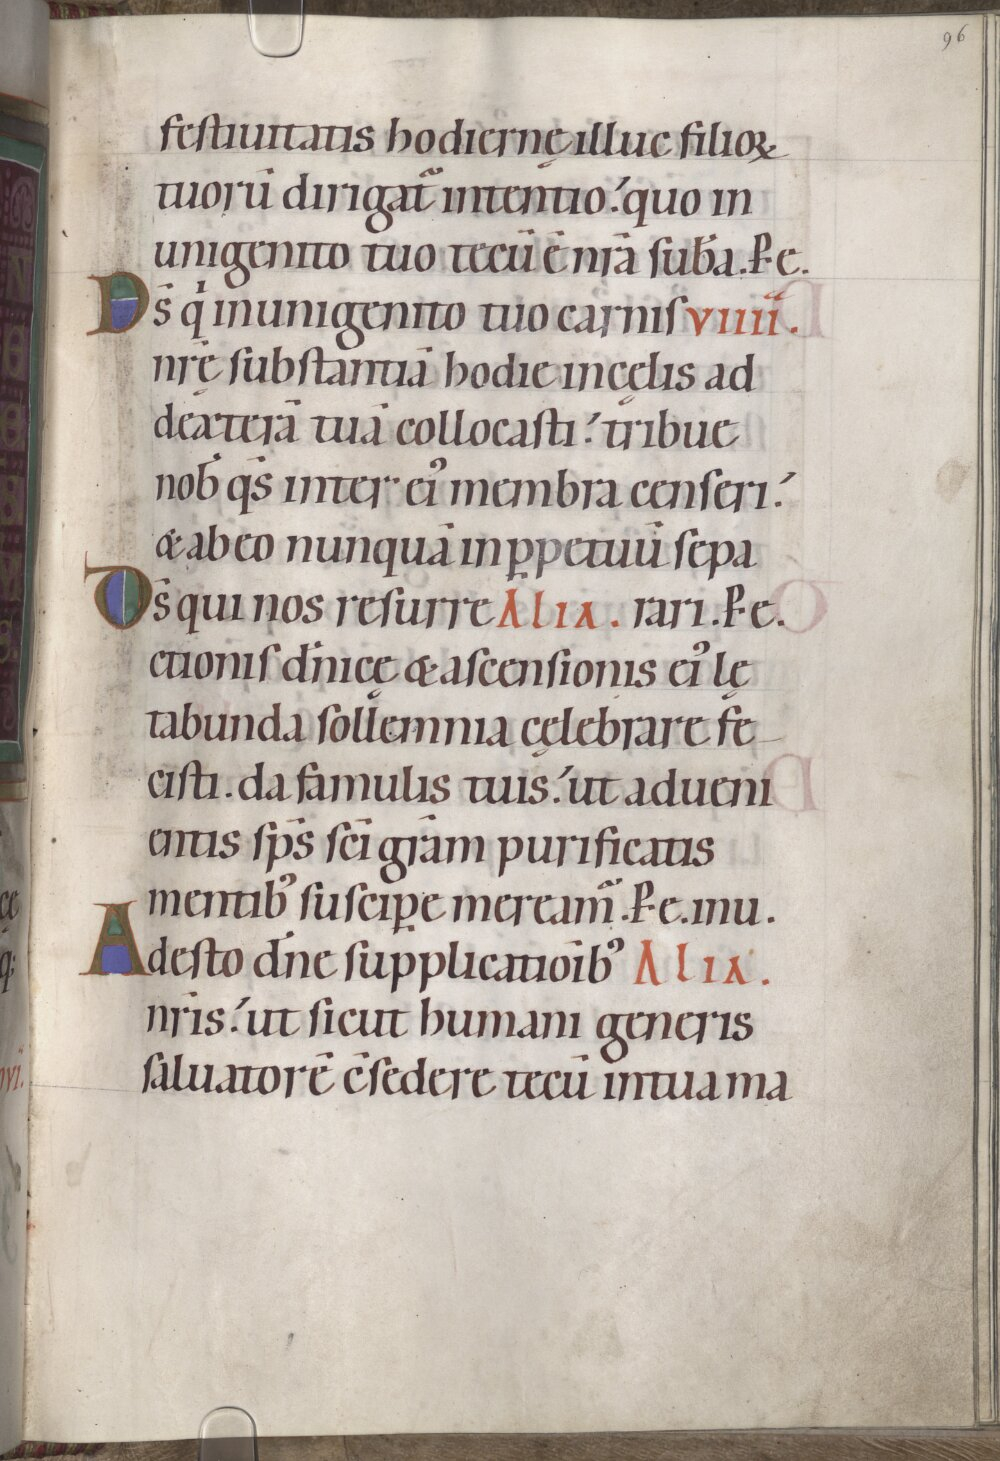 96
festiuitatis hodiernę illuc filioꝝ
tuorū dirigat᷑ intentio.' quo in
unigenito tuo tecū ē nr̄a sub̄a. P̄ e.
Ds̄ q̇ in unigenito tuo carnis viiii.
nrę̄ substantiā hodie in cęlis ad
dexterā tuā collocasti.' tribue
nob̄ qs̄ inter ei᾽ membra censeri.'
& ab eo nunquā in ꝑpetuū sepa
Ds̄ qui nos resurre Alia. rari. P̄ e.
ctionis dn̄icę & ascensionis ei᾽ lę
tabunda sollemnia cęlebrare fe
cisti. da famulis tuis.' ut adueni
entis sp̄s sc̄i gr̄am purificatis
mentib᾽ susciꝑe meream᷑. P̄ e. inu.
Adesto dn̄e supplicatiōib᾽ Alia.
nr̄is.' ut sicut humani generis
saluatorē c̄sedere tecū in tua ma